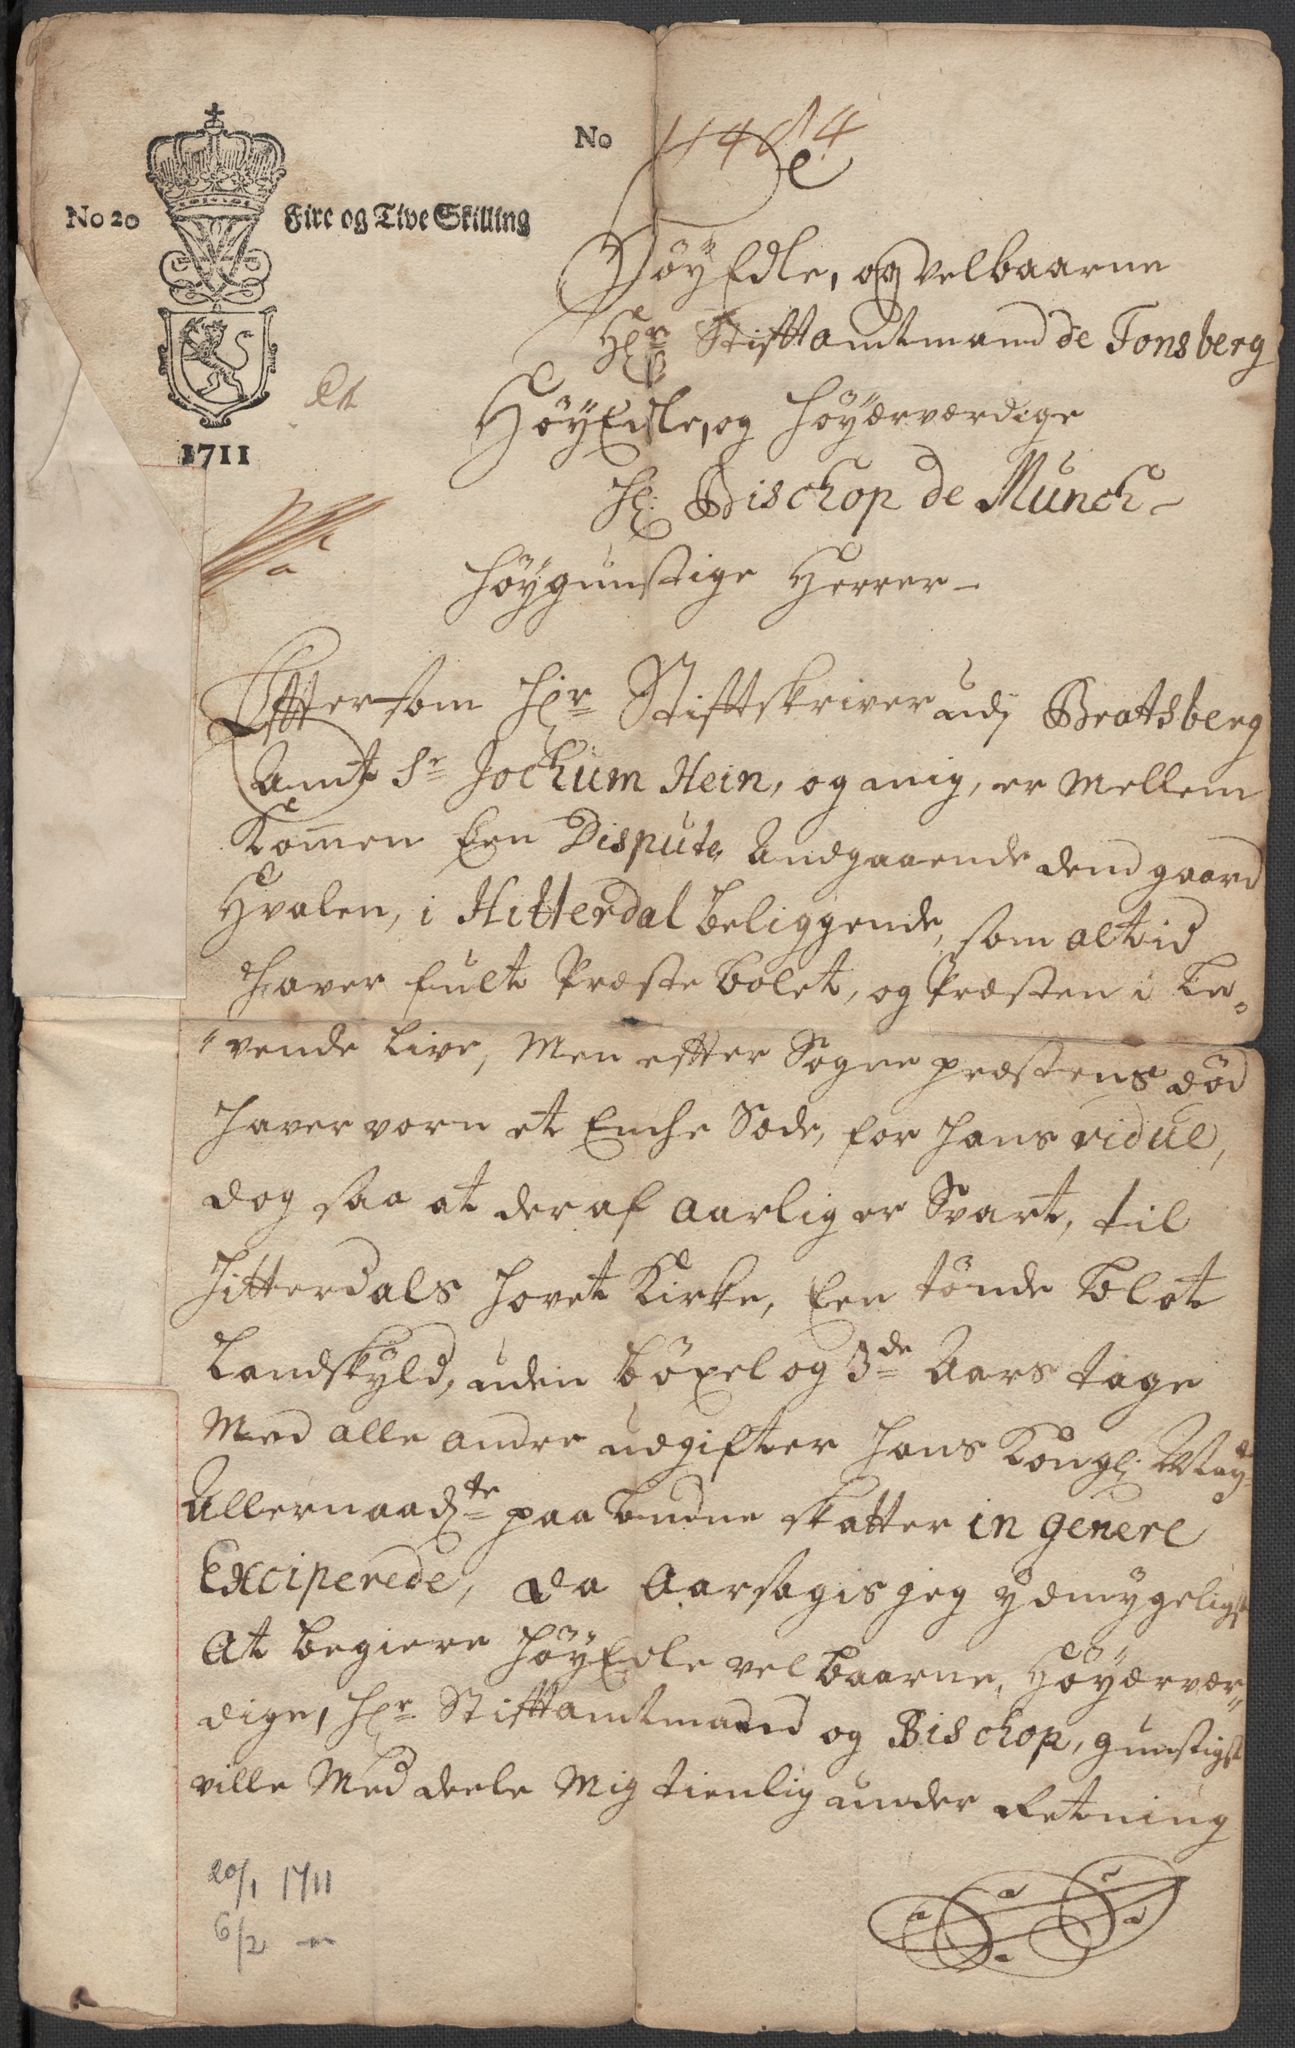 No 1484
No 20 Fire og Tive Skilling
1711
HöyEdle, og velbaarne
Hr Stifftamtmand de Tonsberg
HöyEdle, og Höyærværdige
Hr: Bischop de Münch
Höygunstige Herrer
Efftersom Hr Stifftskriver udj Bratsberg
Amt Sr Jochum Hein, og mig, er Mellem
Kommen Een Dispute, Andgaaende dend gaard
Hvalen, i Hitterdal beliggende, som altid
Haver fult Præste bolet, og Præsten i Le-
vende Live, Men effter Sogne præstens död
Haver vorn et Enche Sæde, for Hans vidue,
dog saa at deraf Aarlig er Svart, til
Hitterdals Hovet Kirke, Een tönde blot
Landskyld, uden böxel og 3de Aars tage
Med alle andre udgifter Hans Kongl: May:
Allernaadste paa budne skatter in genere
Exciperede, da Aarsagis jeg ydmygeligst
At begiere HöyEdle velbaarne, Höyærvær-
dige, Hr Stifftamtmand og Bischop, gunstigst
ville Meddeele Mig tienlig under Retning
20/1 1711
6/2 —